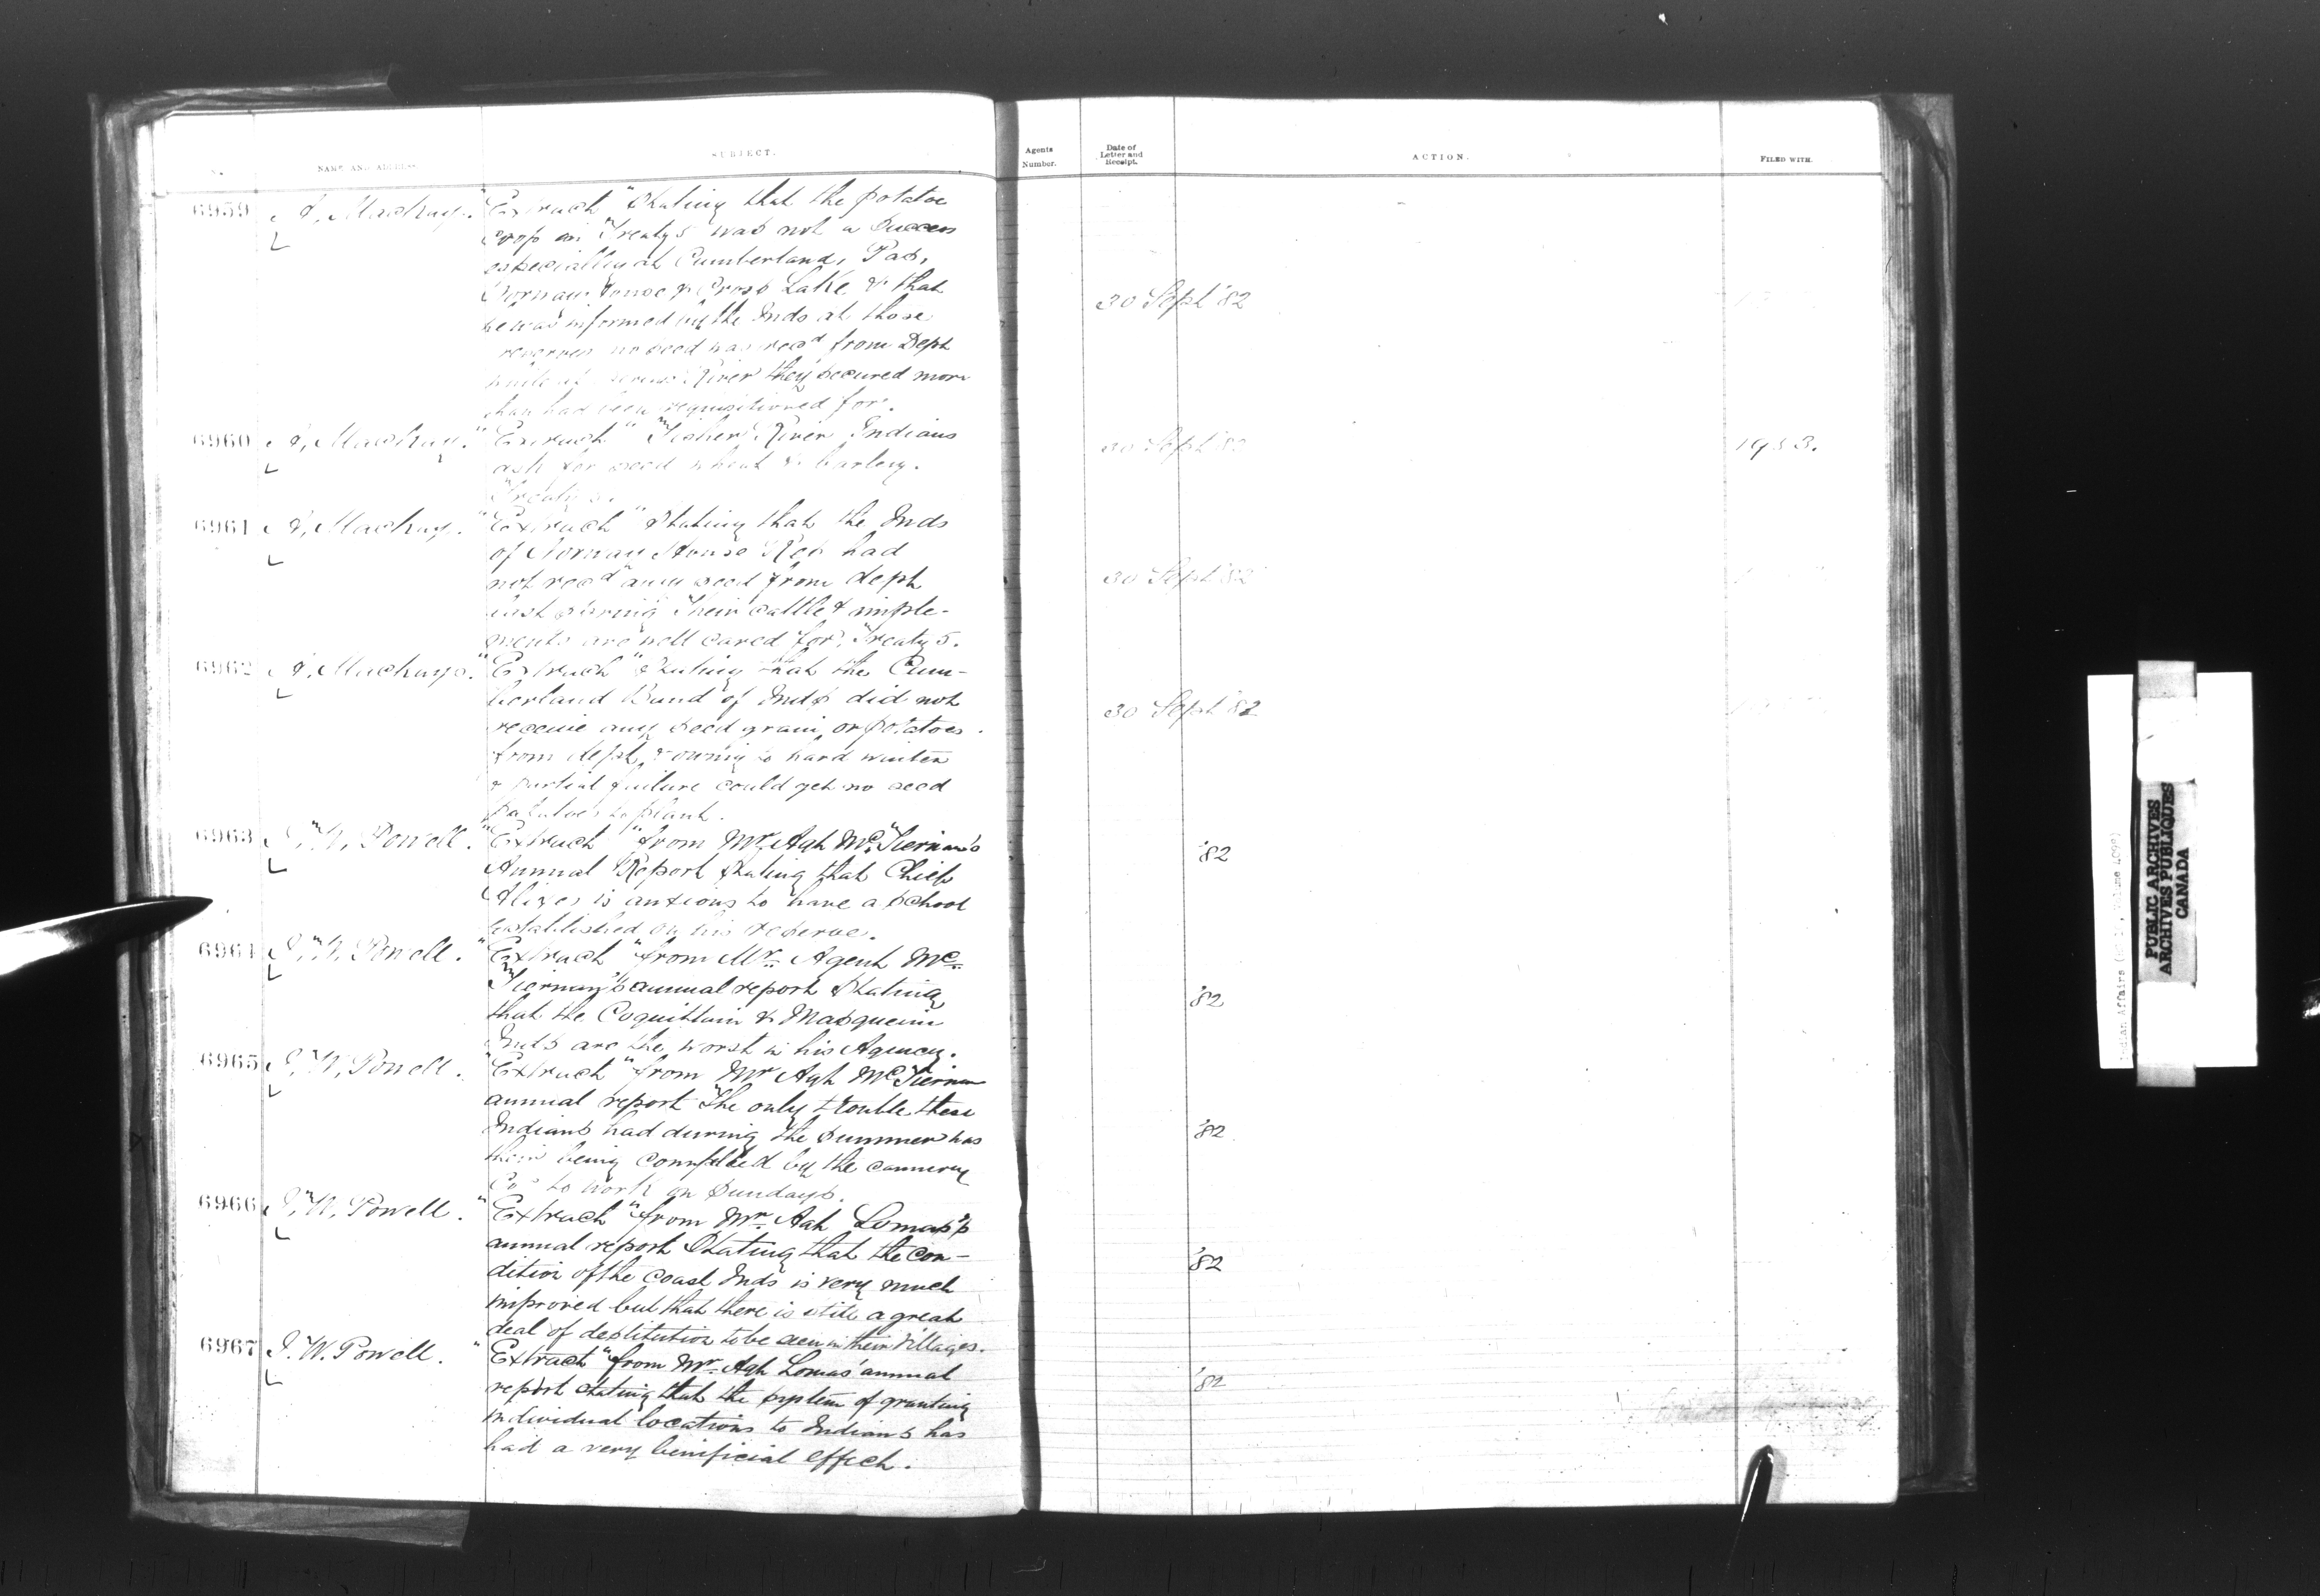 No. NAME AND ADDRESS SUBJECT. Agents Number. Date of Letter and Receipt. ACTION. FILED WITH.
6959 A. Mackay. "Extract" Stating that the potatoe
crop in Treaty 5 was not a success
especially at Cumberland, Pas,
Norway House & Cross Lake & that
he was informed by the Inds at those
30 Sept '82
reserves no seed was recd from Dept
while at River they secured more
than had been requisitioned for.
6960 A. Mackay. "Extract" Fisher River Indians
30 Sept 82
1983.
ask for seed wheat & barley.
Treaty 5.
6961 A. Mackay. "Extract" Stating that the Inds
of Norway House Res had
not recd any seed from dept
30 Sept 82
last spring Their cattle & imple-
ments are well cared for. Treaty 5.
6962 A. Mackay. "Extract" Stating that the Cum-
berland Band of Inds did not
30 Sept 82
receive any seed grain or potatoes
from dept, & owing to hard winter
& partial failure could get no seed
potatoes to plant.
6963 I. W. Powell. "Extract" from Mr. Agt McTiernan's
'82
Annual Report stating that Chief
Alixes is anxious to have a school
established on his reserve.
6964 I. W. Powell. "Extract" from Mr. Agent Mc
Tiernan's annual report stating
'82
that the Coquittain & Masqueim
Inds are the worst in his Agency.
6965 I. W. Powell. "Extract" from Mr Agt McTiernan
annual report The only trouble these
Indians had during the summer was
'82
their being compelled by the cannery
Co's to work on Sundays.
6966 I. W. Powell. "Extract" from Mr. Agt Lomas's
annual report Stating that the con-
'82
dition of the Coast Inds is very much
improved but that there is still a great
deal of destitution to be seen in their villages.
6967 I. W. Powell. "Extract" from Mr. Agt Lomas' annual
'82
report stating that the system of granting
individual locations to Indians has
had a very beneficial effect.
PUBLIC ARCHIVES
ARCHIVES PUBLIQUES
CANADA